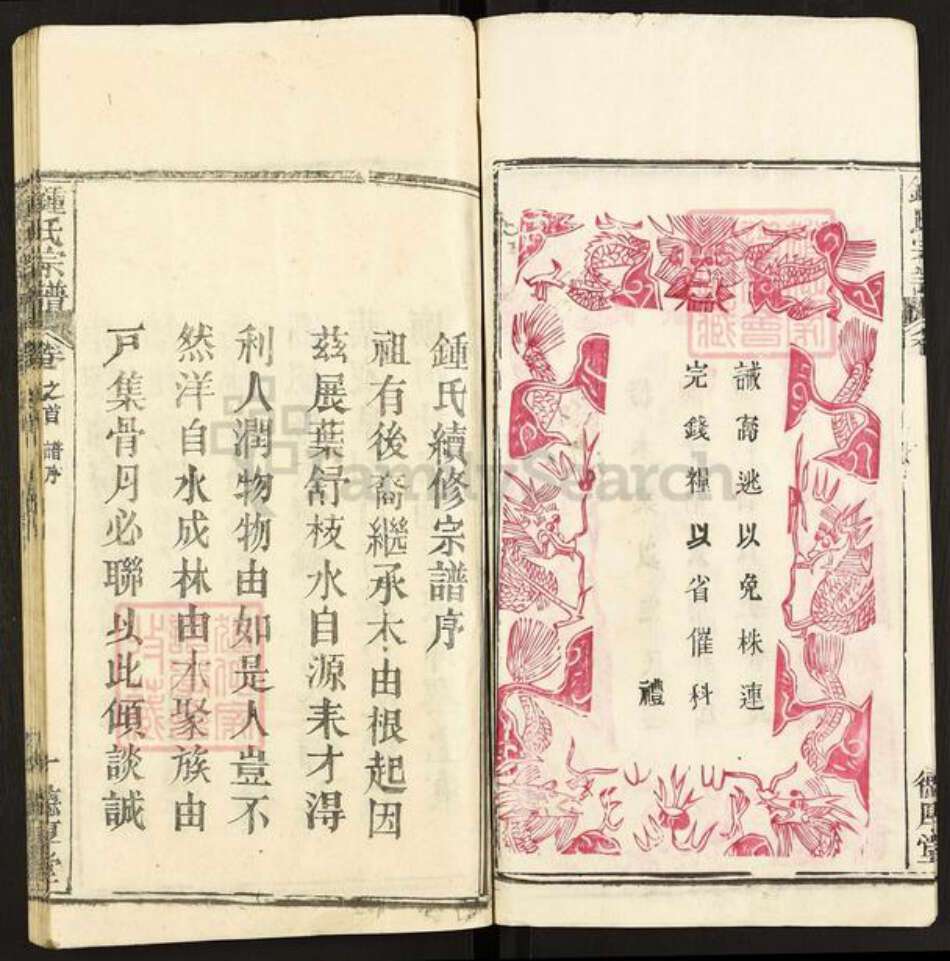 誡窩逃以免株連
完錢糧以省催科
禮
鍾氏續修宗譜序
祖有後裔繼承木由根起因
茲展葉舒枝水自源来才淂
利人潤物物由如是人豈不
然洋自水成林由木聚族由
戸集骨月必聯以此傾談誠
鍾氏宗譜
卷之首 譜序
一
德厚堂
FamilySearch